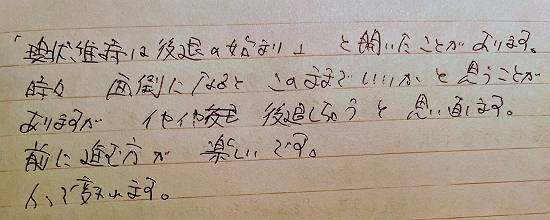 「現状維持は後退の始まり」と聞いたことがあります。
時々 面倒になると このままでいいかと思うことが
ありますが イヤイヤ 後退しちゃうと 思い直します。
前に進む方が 楽しいです。
で変われます。